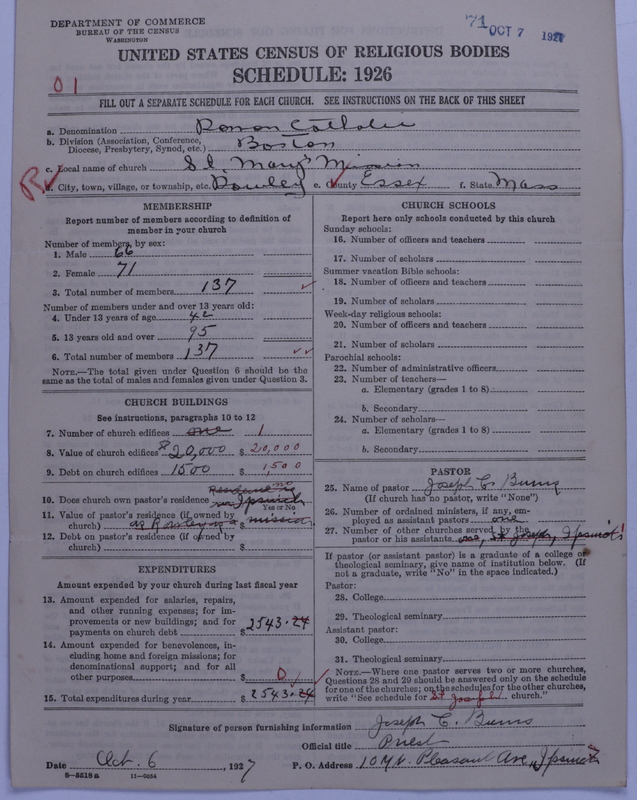 DEPARTMENT OF COMMERCE
BUREAU OF THE CENSUS
WASHINGTON
71
OCT 7 1927
UNITED STATES CENSUS OF RELIGIOUS BODIES
SCHEDULE: 1926
01
FILL OUT A SEPARATE SCHEDULE FOR EACH CHURCH. SEE INSTRUCTIONS ON THE BACK OF THIS SHEET
a. Denomination Roman Catholic
b. Division (Association, Conference, Diocese, Presbytery, Synod, etc.) Boston
c. Local name of church St. Mary's Mission
d. City, town, village, or township, etc. Rowley e. County Essex f. State Mass
MEMBERSHIP
Report number of members according to definition of
member in your church
Number of members, by sex:
1. Male 66
2. Female 71
3. Total number of members 137
Number of members under and over 13 years old:
4. Under 13 years of age 42
5. 13 years old and over 95
6. Total number of members 137
NOTE.—The total given under Question 6 should be the
same as the total of males and females given under Question 3.
CHURCH BUILDINGS
See instructions, paragraphs 10 to 12
7. Number of church edifices one 1
8. Value of church edifices $20,000 $ 20,000
9. Debt on church edifices 1500 $ 1,500
10. Does church own pastor's residence Residence in Ipswich no
Yes or No
11. Value of pastor's residence (if owned by
church) as Rowley is a mission
12. Debt on pastor's residence (if owned by
church) $
EXPENDITURES
Amount expended by your church during last fiscal year
13. Amount expended for salaries, repairs,
and other running expenses; for im-
provements or new buildings; and for
payments on church debt $ 2543.24
14. Amount expended for benevolences, in-
cluding home and foreign missions; for
denominational support; and for all
other purposes $ 0
15. Total expenditures during year $ 2543.24
CHURCH SCHOOLS
Report here only schools conducted by this church
Sunday schools:
16. Number of officers and teachers
17. Number of scholars
Summer vacation Bible schools:
18. Number of officers and teachers
19. Number of scholars
Week-day religious schools:
20. Number of officers and teachers
21. Number of scholars
Parochial schools:
22. Number of administrative officers
23. Number of teachers—
a. Elementary (grades 1 to 8)
b. Secondary
24. Number of scholars—
a. Elementary (grades 1 to 8)
b. Secondary
PASTOR
25. Name of pastor Joseph C. Burns
(If church has no pastor, write "None")
26. Number of ordained ministers, if any, em-
ployed as assistant pastors one
27. Number of other churches served by the
pastor or his assistants one, St. Joseph, Ipswich 1
If pastor (or assistant pastor) is a graduate of a college or
theological seminary, give name of institution below. (If
not a graduate, write "No" in the space indicated.)
Pastor:
28. College
29. Theological seminary
Assistant pastor:
30. College
31. Theological seminary
NOTE.—Where one pastor serves two or more churches,
Questions 28 and 29 should be answered only on the schedule
for one of the churches; on the schedules for the other churches,
write "See schedule for St. Joseph church."
Signature of person furnishing information Joseph C. Burns
Official title Priest
Date Oct. 6, 1927 P. O. Address 10 Mt. Pleasant Ave, Ipswich
8—5518a 11—9354